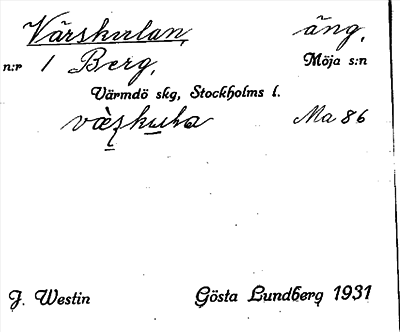 Vårskulan, äng,
n:r 1 Berg, Möja s:n
Värmdö skg, Stockholms l.
Ma 86
J. Westin Gösta Lundberg 1931